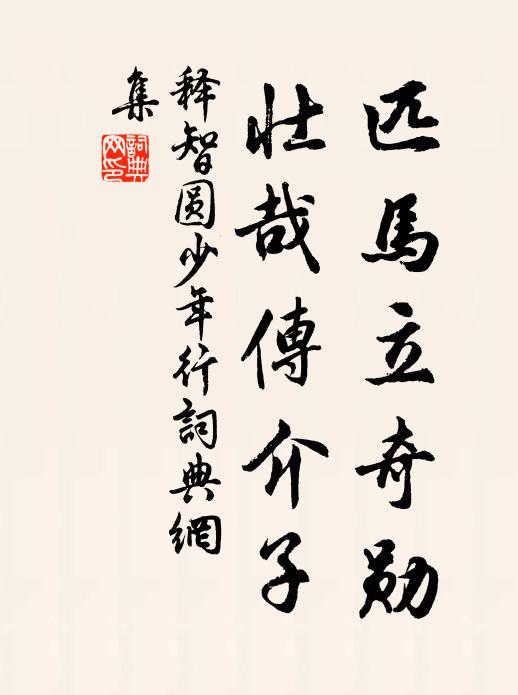 匹馬立奇勋
壮哉傳介子
释智圆少年行詞典網
集
詞典
网印